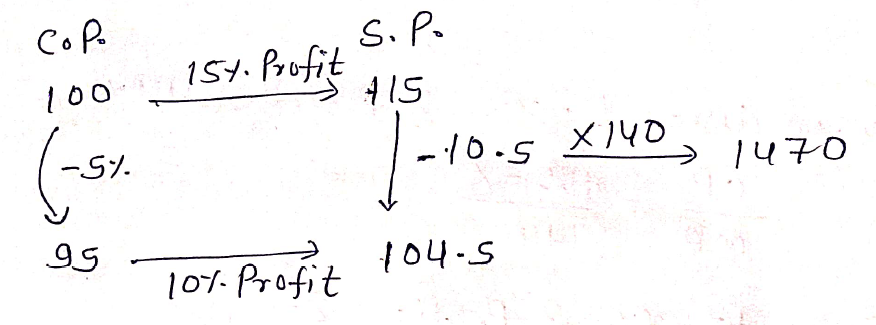 C.P. S.P.
100 15% Profit 115
-5% -10.5 ×140 1470
95 10% Profit 104.5